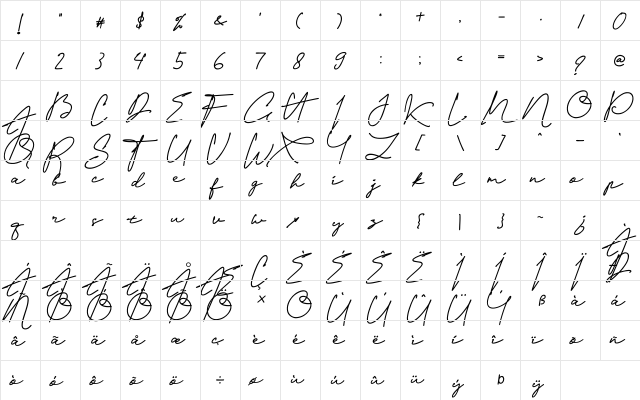 ! " # $ % & ' ( ) * + , - . / 0
1 2 3 4 5 6 7 8 9 : ; < = > ? @
A B C D E F G H I J K L M N O P
Q R S T U V W X Y Z [ \ ] ^ _ `
a b c d e f g h i j k l m n o p
q r s t u v w x y z { | } ~ ¿ À
Á Â Ã Ä Å Æ Ç È É Ê Ë Ì Í Î Ï Ð
Ñ Ò Ó Ô Õ Ö × Ø Ù Ú Û Ü Ý ß à á
â ã ä å æ ç è é ê ë ì í î ï ð ñ
ò ó ô õ ö ÷ ø ù ú û ü ý þ ÿ